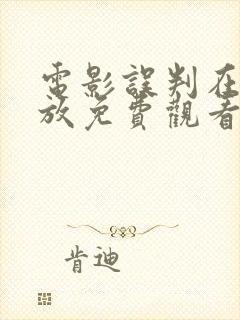 電影誤判在
放免費觀看
肯迪